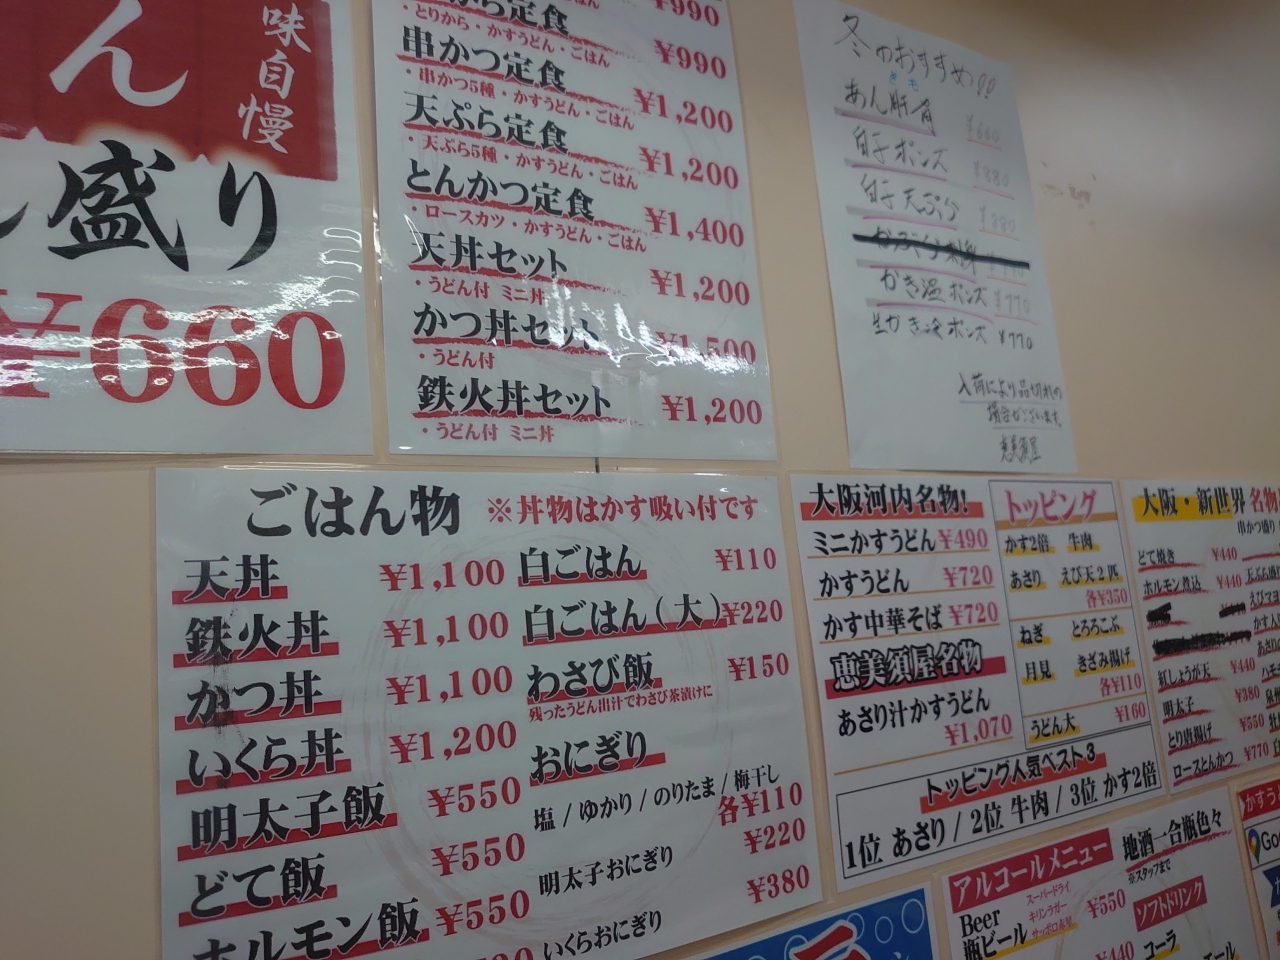 ん
味自慢
盛り
¥660
¥990
から定食
・とりから・かすうどん・ごはん
¥990
串かつ定食
・串かつ5種・かすうどん・ごはん
¥1,200
天ぷら定食
・天ぷら5種・かすうどん・ごはん
¥1,200
とんかつ定食
・ロースカツ・かすうどん・ごはん
¥1,400
天丼セット
・うどん付 ミニ丼
¥1,200
かつ丼セット
・うどん付
¥1,500
鉄火丼セット
・うどん付 ミニ丼
¥1,200
冬のおすすめ!!
あん肝 ¥660
白子ポンズ ¥880
白子天ぷら ¥880
かき温ポンズ ¥770
生かき冷ポンズ ¥770
入荷により品切れの
場合がございます。
恵美須屋
ごはん物 ※丼物はかす吸い付です
天丼 ¥1,100
鉄火丼 ¥1,100
かつ丼 ¥1,100
いくら丼 ¥1,200
明太子飯 ¥550
どて飯 ¥550
ホルモン飯 ¥550
白ごはん ¥110
白ごはん(大) ¥220
わさび飯 ¥150
残ったうどん出汁でわさび茶漬けに
おにぎり
塩/ゆかり/のりたま/梅干し
各¥110
明太子おにぎり ¥220
いくらおにぎり ¥380
大阪河内名物!
ミニかすうどん ¥490
かすうどん ¥720
かす中華そば ¥720
恵美須屋名物
あさり汁かすうどん
¥1,070
トッピング
かす2倍 牛肉
あさり えび天2匹
各¥350
ねぎ とろろこぶ
月見 きざみ揚げ
各¥110
うどん大 ¥160
トッピング人気ベスト3
1位 あさり/2位 牛肉/3位 かす2倍
大阪・新世界名物
串かつ盛り
どて焼き ¥440
ホルモン煮込 ¥440
紅しょうが天 ¥440
明太子 ¥380
とり唐揚げ ¥550
ロースとんかつ ¥770
天ぷら盛り
えびマヨ
アルコールメニュー
Beer
瓶ビール
スーパードライ
キリンラガー
サッポロ黒
¥550
¥440
地酒一合瓶色々
※スタッフまで
ソフトドリンク
コーラ
かすう
Go